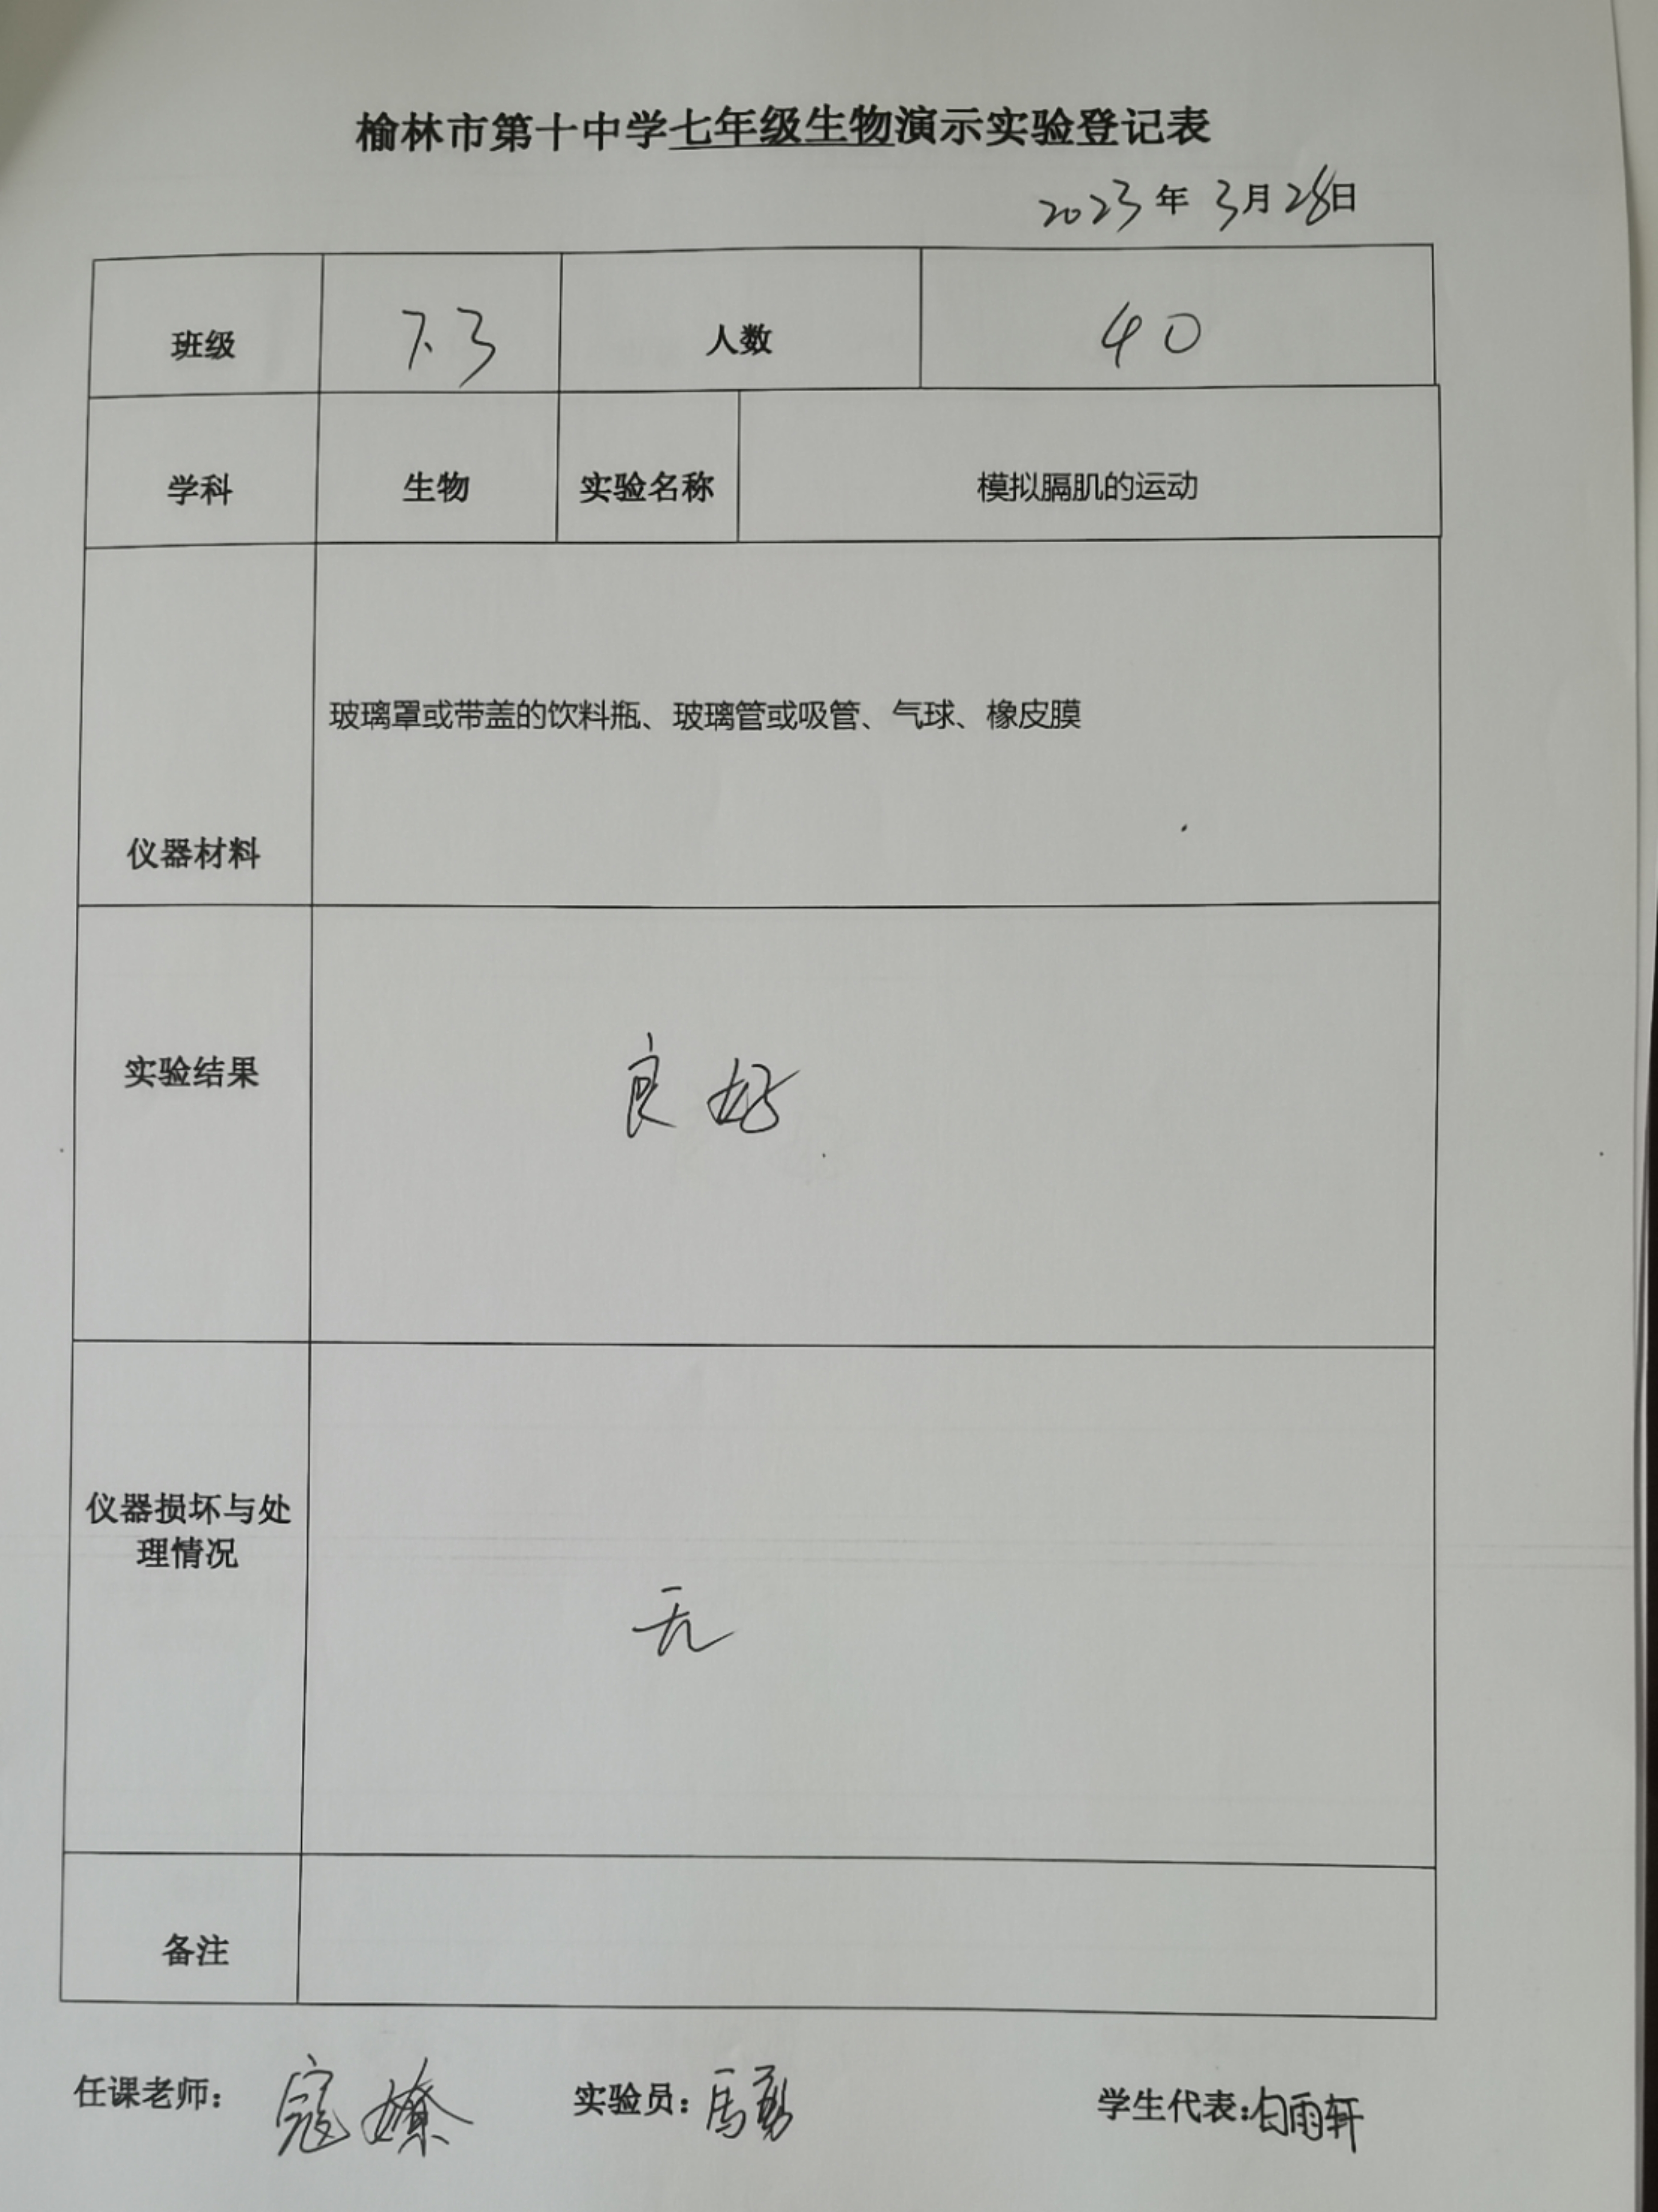 榆林市第十中学七年级生物演示实验登记表
2023年 3月28日
班级 7.3 人数 40
学科 生物 实验名称 模拟膈肌的运动
玻璃罩或带盖的饮料瓶、玻璃管或吸管、气球、橡皮膜
仪器材料
实验结果 良好
仪器损坏与处
理情况
无
备注
任课老师：寇嫽 实验员：马勇 学生代表：白雨轩